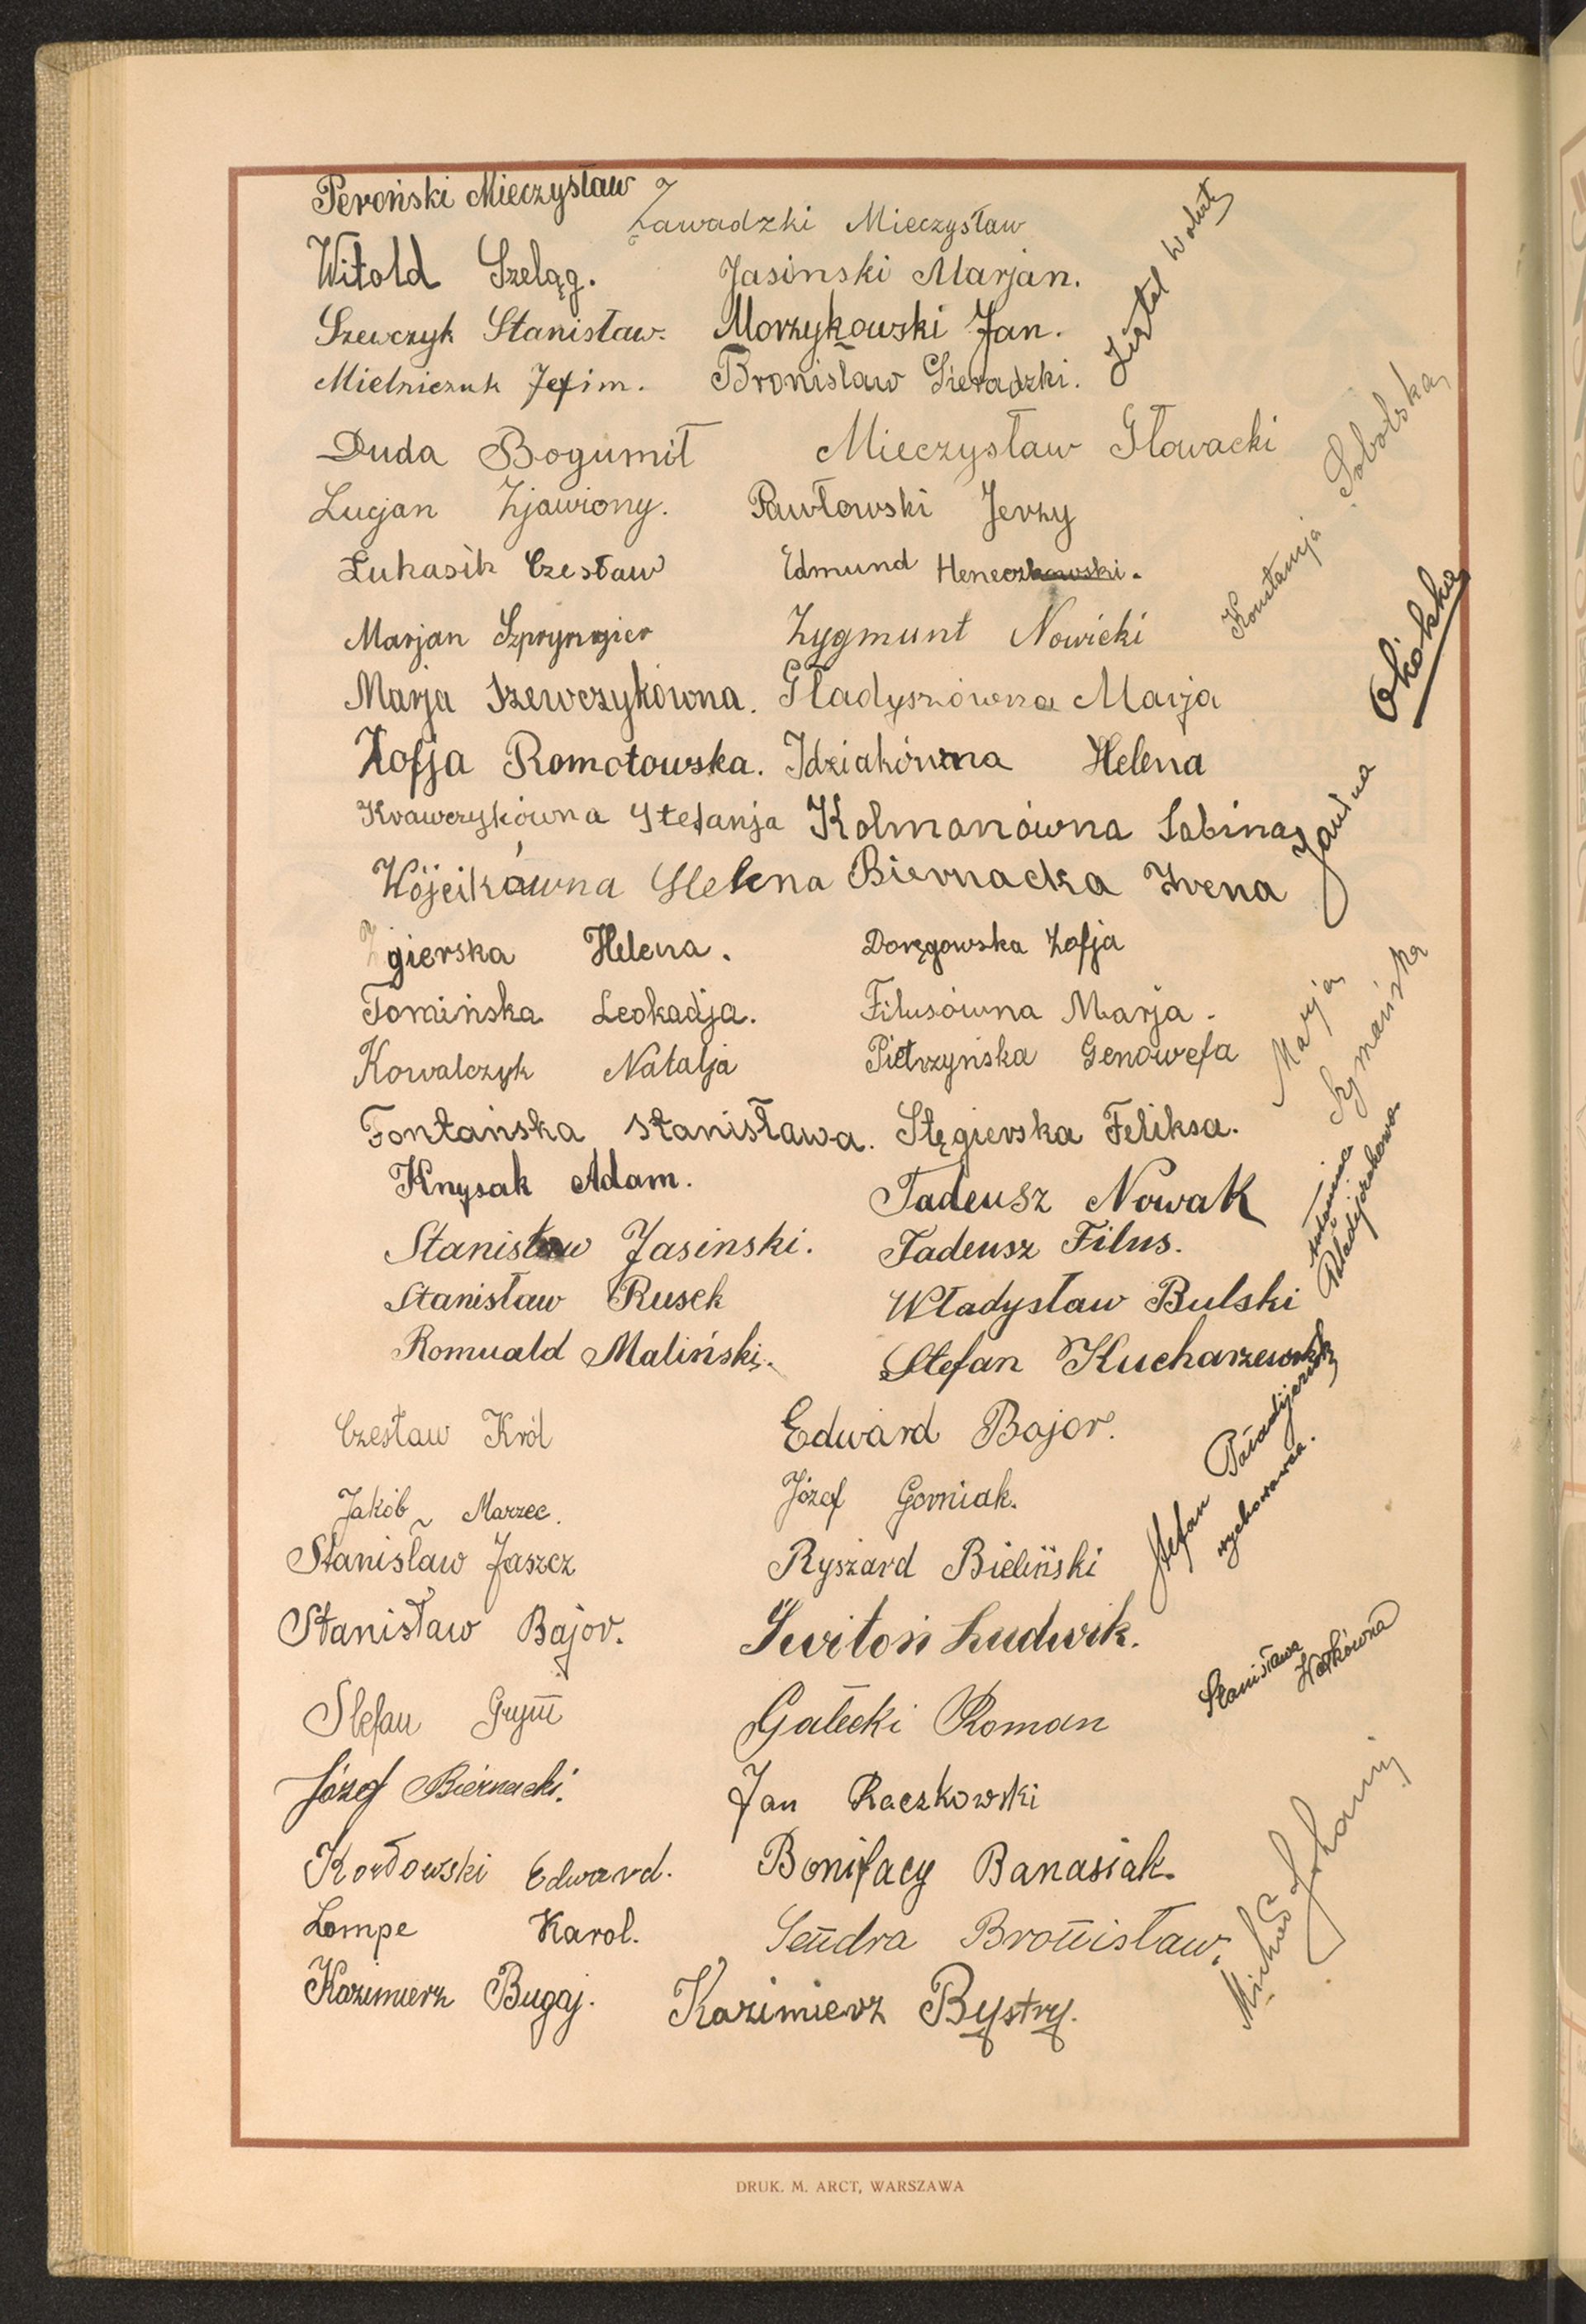 Peroński Mieczysław
Zawadzki Mieczysław
Witold Szeląg. Jasinski Marjan.
Szewczyk Stanisław. Morzykowski Jan.
Mielniczuk Jefim. Bronisław Sieradzki.
Duda Bogumił Mieczysław Głowacki
Lucjan Zjawiony. Pawłowski Jerzy
Łukasik Czesław Edmund
Marjan Szpryngier Zygmunt Nowicki
Marja Szewczykówna. Gładyszówna Marja
Zofja Romotowska. Idziakówna Helena
Krawczykówna Stefanja Kolmanówna Sabina
Wójcikówna Helena Biernacka Irena
Zgierska Helena. Doręgowska Zofja
Tomińska Leokadja. Filusówna Marja.
Kowalczyk Natalja Pietrzyńska Genowefa
Fontańska Stanisława. Stęgierska Feliksa.
Knysak Adam. Tadeusz Nowak
Stanisław Jasinski. Tadeusz Filus.
Stanisław Rusek Władysław Bulski
Romuald Maliński. Stefan Kucharzewski
Czesław Król Edward Bojor.
Jakób Marzec. Józef Gorniak.
Stanisław Jaszcz Ryszard Bieliński
Stanisław Bajor. Świtoń Ludwik.
Stefan Grym Gałecki Roman
Józef Biernacki. Jan Raczkowski
Kozłowski Edward. Bonifacy Banasiak.
Lompe Karol. Sendra Bronisław.
Kazimierz Bugaj. Kazimierz Bystry.
Konstancja Sobolska
Janina Okólska
Marja Szymańska
Stefan
wychowawca.
Stanisława
Michał
DRUK. M. ARCT, WARSZAWA